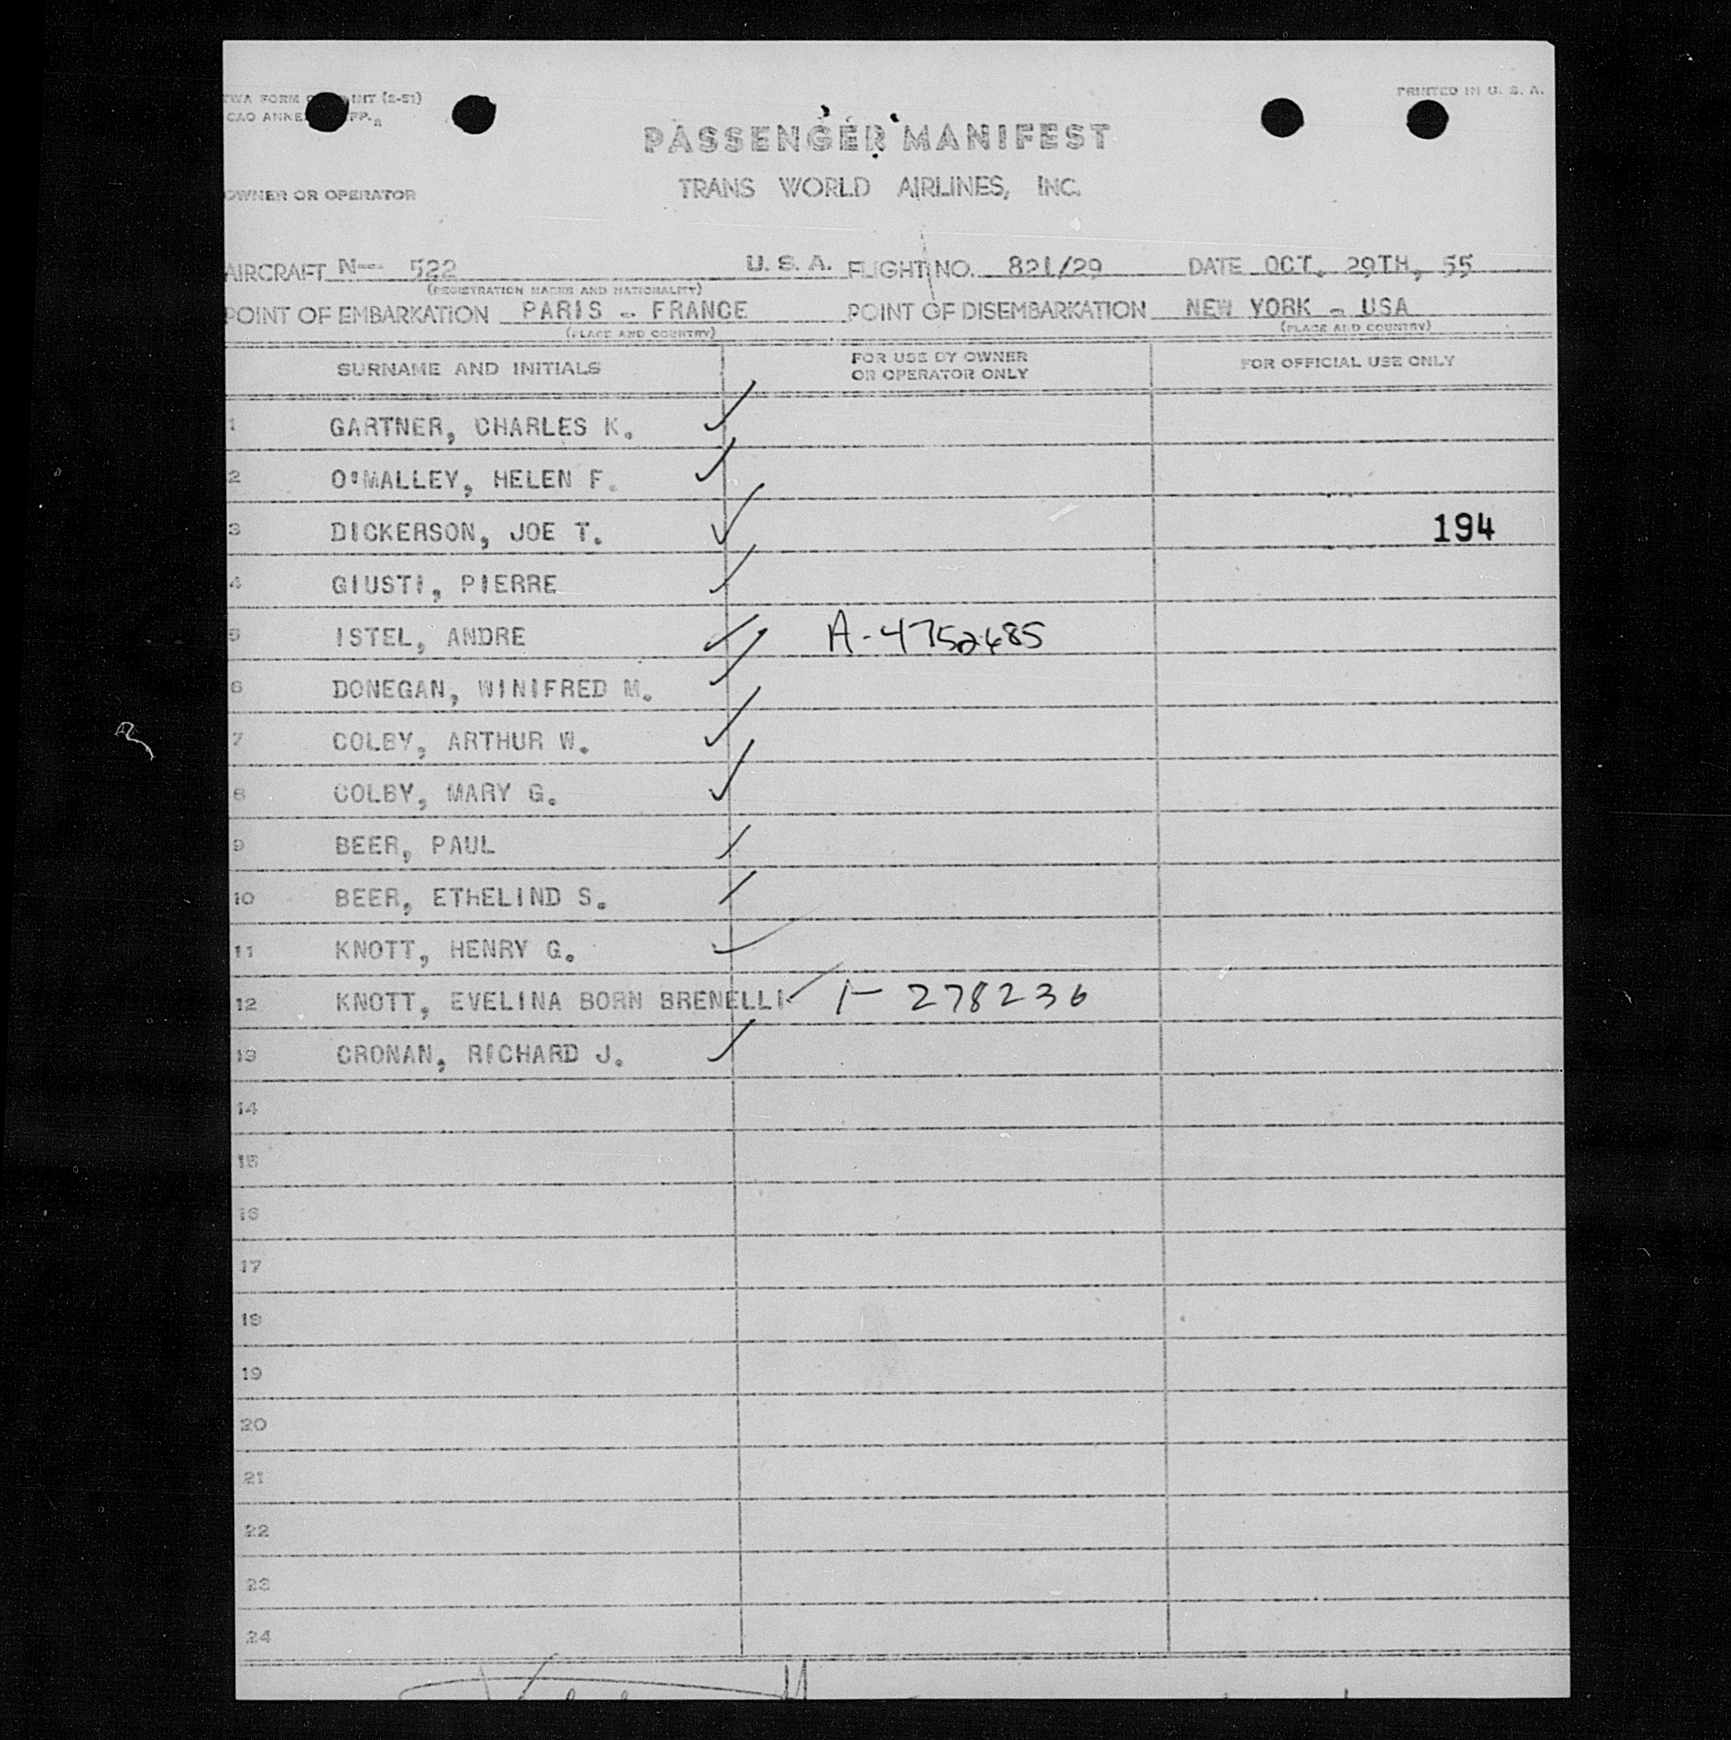 TWA FORM INT (2-51)
PRINTED IN U. S. A.
CAO ANNE PP.
PASSENGER MANIFEST
OWNER OR OPERATOR
TRANS WORLD AIRLINES, INC.
AIRCRAFT N-- 522 U. S. A. FLIGHT NO. 821/29 DATE OCT. 29TH, 55
(REGISTRATION MARKS AND NATIONALITY)
POINT OF EMBARKATION PARIS - FRANCE POINT OF DISEMBARKATION NEW YORK - USA
(PLACE AND COUNTRY) (PLACE AND COUNTRY)
SURNAME AND INITIALS FOR USE BY OWNER OR OPERATOR ONLY FOR OFFICIAL USE ONLY
1 GARTNER, CHARLES K.
2 O'MALLEY, HELEN F.
3 DICKERSON, JOE T. 194
4 GIUSTI, PIERRE
5 ISTEL, ANDRE A-4752685
6 DONEGAN, WINIFRED M.
7 COLBY, ARTHUR W.
8 COLBY, MARY G.
9 BEER, PAUL
10 BEER, ETHELIND S.
11 KNOTT, HENRY G.
12 KNOTT, EVELINA BORN BRENELLI 1-278236
13 CRONAN, RICHARD J.
14
15
16
17
18
19
20
21
22
23
24